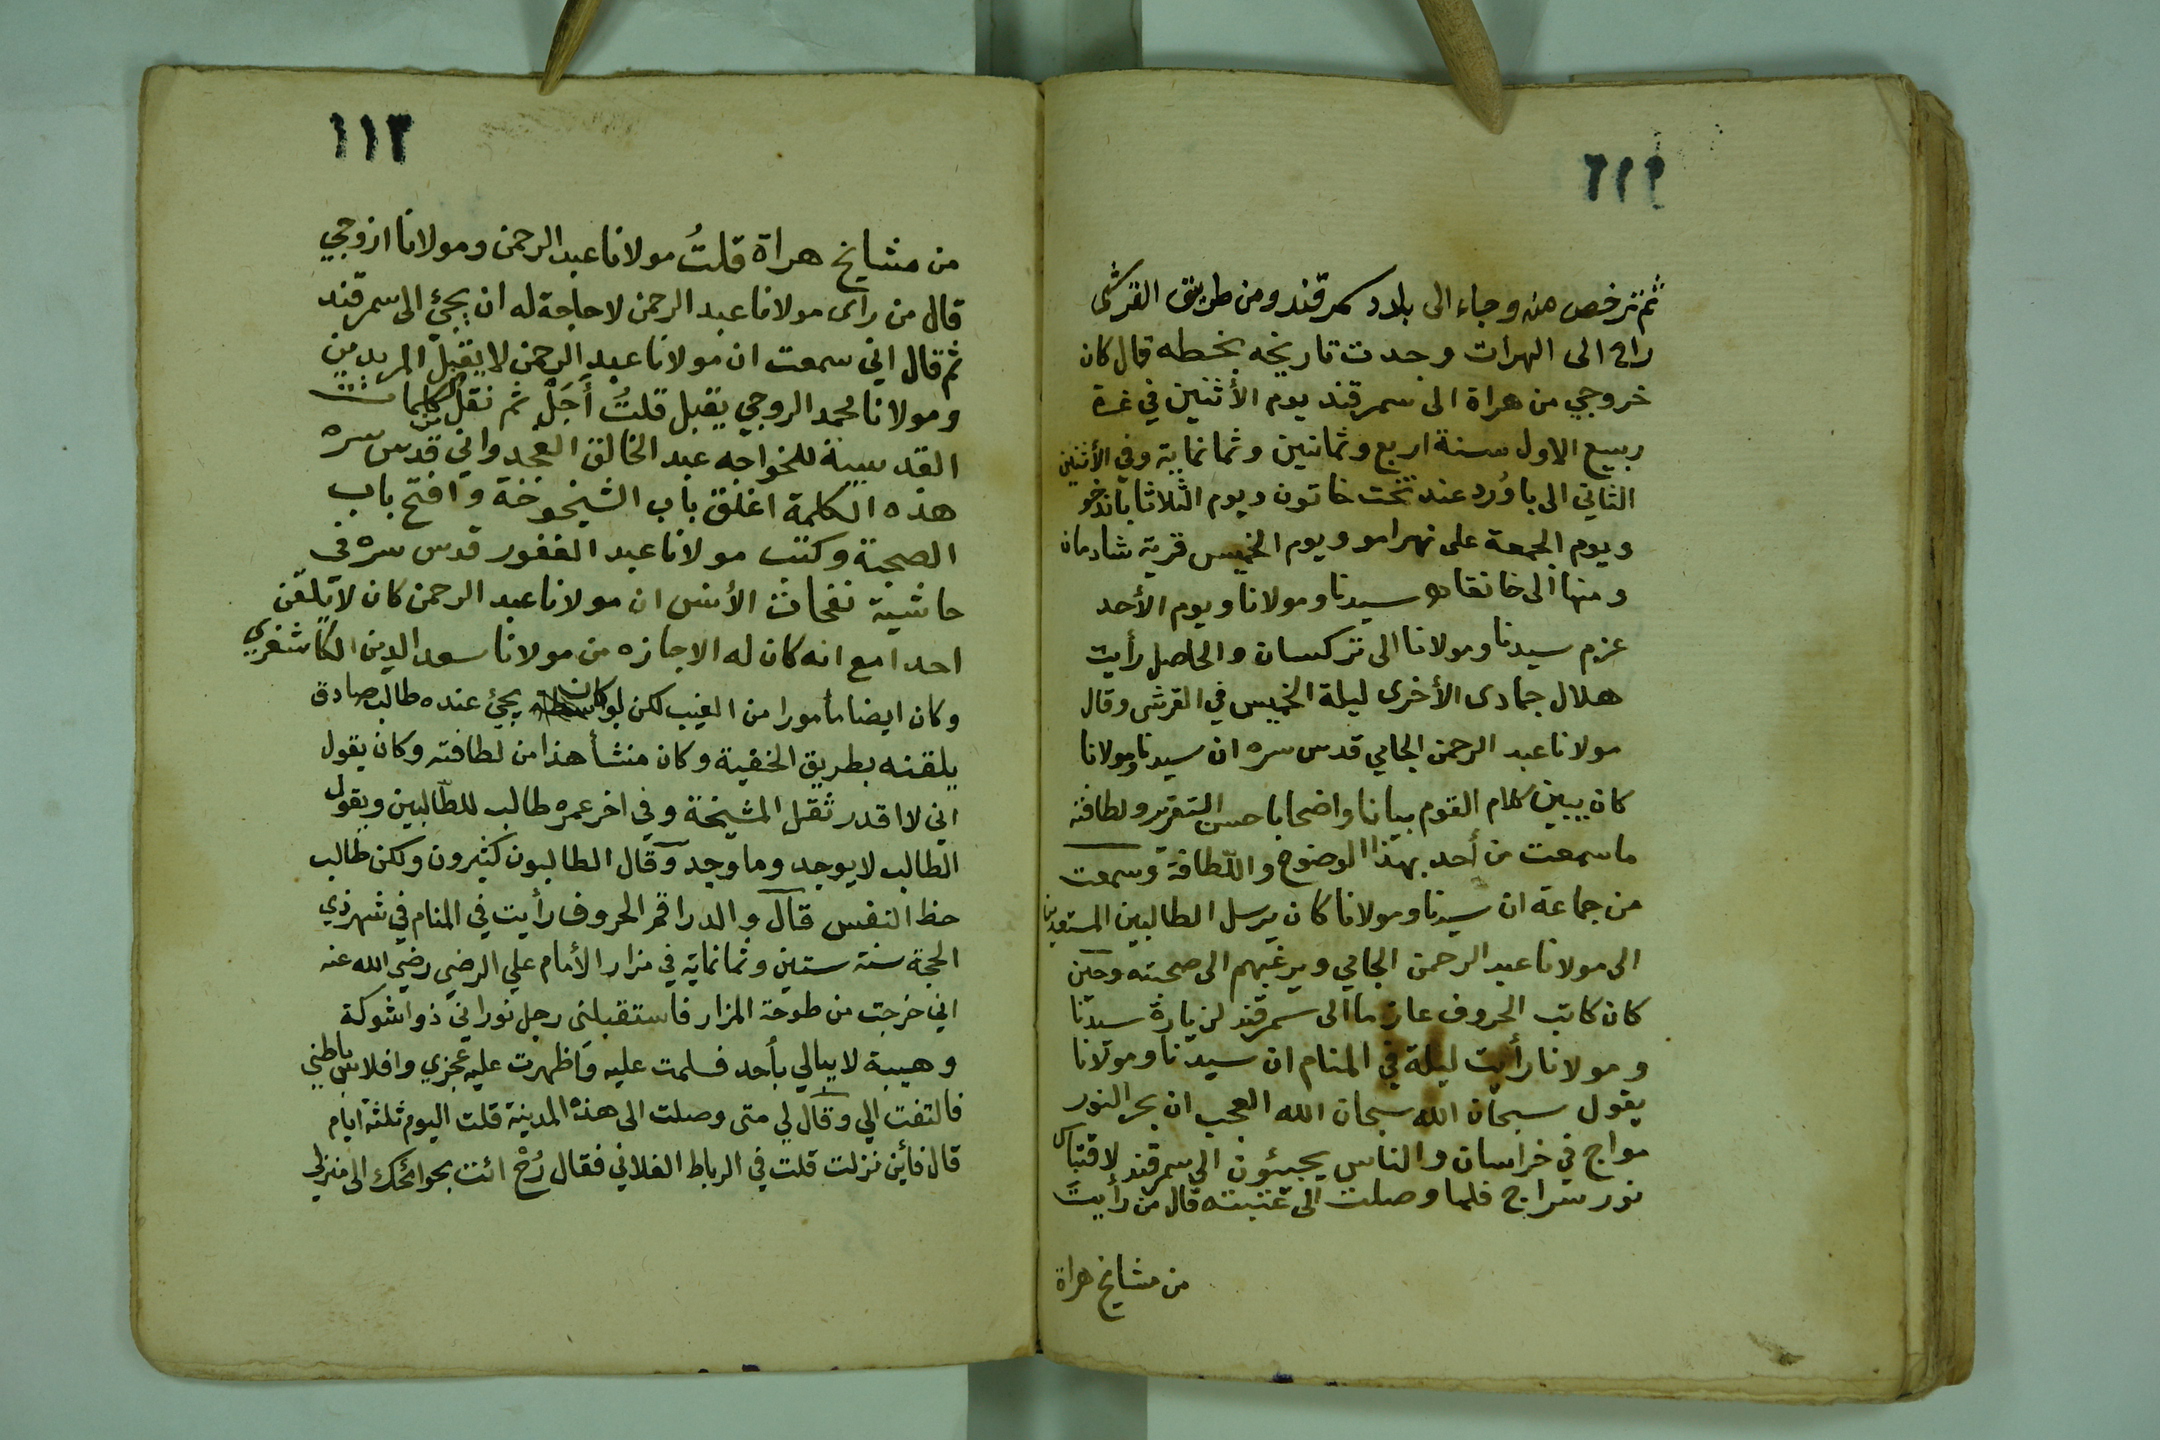 ثم ترخص منه وجاء الى بلاد سمرقند ومن طريق القرشى
راح الى الهرات وجدت تاريخه بخطه قال كان
خروجي من هراة الى سمرقند يوم الأثنين في غرة
ربيع الاول سنة اربع وثمانين وثمانماية وفي الأثنين
الثاني الى باورد عند تخت خاتون ويوم الثلاثا باندخو
ويوم الجمعة على نهرامو ويوم الخميس قرية شادمان
ومنها الى خانقاه سيدنا ومولانا ويوم الأحد
عزم سيدنا ومولانا الى تركسان والحاصل رأيت
هلال جمادى الأخرى ليلة الخميس في القرشى وقال
مولانا عبد الرحمن الجامي قدس سره ان سيدنا ومولانا
كان يبين كلام القوم بيانا واضحا باحسن التقرير ولطافته
ما سمعت من أحد بهذا الوضوح واللّطافة وسمعت
من جماعة ان سيدنا ومولانا كان يرسل الطالبين المستعدين
الى مولانا عبد الرحمن الجامي ويرغبهم الى صحبته وحين
كان كاتب الحروف عازما الى سمرقند لزيارة سيدنا
ومولانا رأيت ليلة في المنام ان سيدنا ومولانا
يقول سبحان الله سبحان الله العجب ان بحر النور
مواج في خراسان والناس يجيئون الى سمرقند لاقتباس
نور سراج فلما وصلت الى عتبته قال من رأيت
من مشايخ هراة
١١٣
من مشايخ هراة قلتُ مولانا عبد الرحمن ومولانا ازوجي
قال من راى مولانا عبد الرحمن لا حاجة له ان يجيء الى سمرقند
ثم قال اني سمعت ان مولانا عبد الرحمن لا يقبل المريدين
ومولانا محمد الروجي يقبل قلتُ أَجَلْ ثم نقل كلمات
القدسية للخواجه عبد الخالق الغجدواني قدس سره
هذه الكلمة اغلق باب الشيخوخة وافتح باب
الصحبة وكتب مولانا عبد الغفور قدس سره في
حاشية نفحات الأنس ان مولانا عبد الرحمن كان لا يلقّن
احدا مع انه كان له الاجازه من مولانا سعد الدين الكاشغري
وكان ايضا مأمورا من الغيب لكن لو كان يجئ عنده طالب صادق
يلقنه بطريق الخفية وكان منشأ هذا من لطافته وكان يقول
اني لا اقدر ثقل المشيخة وفي اخر عمره طالب للطّالبين ويقول
الطالب لا يوجد وما وجد وقال الطالبون كثيرون ولكن طالب
حظ النفس قال والد راقم الحروف رأيت في المنام في شهر ذي
الحجة سنة ستين وثمانماية في مزار الأمام علي الرضي رضي الله عنه
اني خرجت من طوحة المزار فاستقبلنى رجل نوراني ذو اشوكة
وهيبة لا يبالي بأحد فسلمت عليه وَاظهرت عليه عجزي وافلاس باطني
فالتفت الي وقال لي متى وصلت الى هذه المدينة قلت اليوم ثلثة ايام
قال فأين نزلت قلت في الرباط الفلاني فقال رُحْ ائت بحوائجك الى منزلي